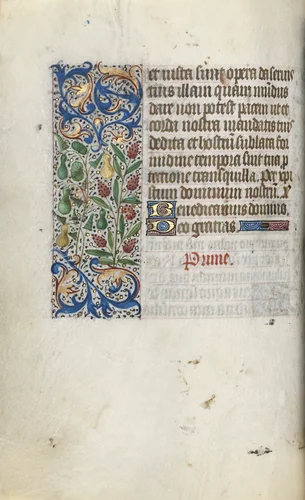 et iusta sunt opera da seruis
tuis illam quam mundus
dare non potest pacem ut et
corda nostra mandatis tuis
dedita et hostium sublata for
midine tempora sint tua p
tectione tranquilla. Per xpi
stum dominum nostrum.
Benedicamus domino.
Deo gratias
Prime.